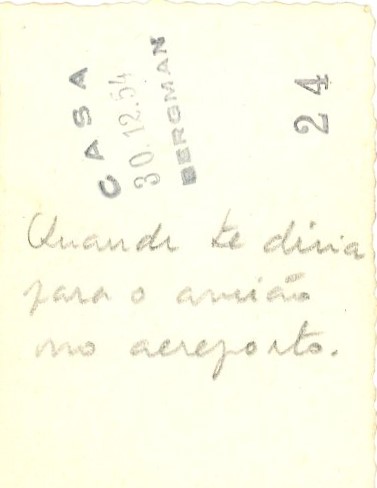 CASA
30.12.54
BERGMAN
24
Quando te diria
para o avião
no aereporto.